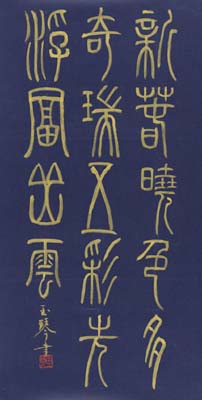 新春曉色多
奇瑞五彩光
浮富岳雲
玉琴書